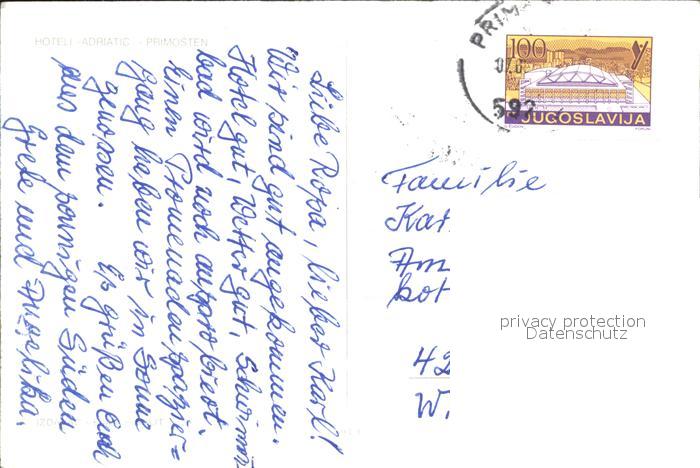 HOTELI ADRIATIC - PRIMOSTEN
Liebe Rosa, lieber Karl!
Wir sind gut angekommen.
Hotel gut, Wetter gut, Schwimm
bad wird noch ausprobiert.
Einen Promenadenspazier=
gang haben wir in Sonne
genossen. Es grüßen Euch
aus dem sonnigen Süden
Grete und Angelika.
PRIM
100
JUGOSLAVIJA
Familie
Kar
Am
bot
42
W.
privacy protection
Datenschutz